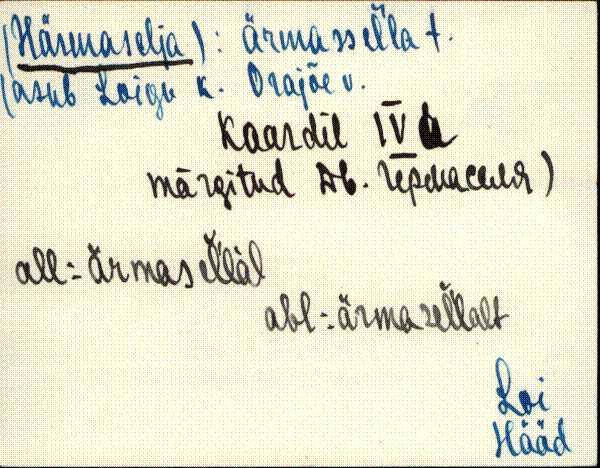 (Härmaselja): ärmassella t.
(asub Loigu k. Orajõe v.
Kaardil IV a
märgitud Дв. Чермаселя)
all: ärmasellal
abl: ärmasellalt
Loi
Hääd